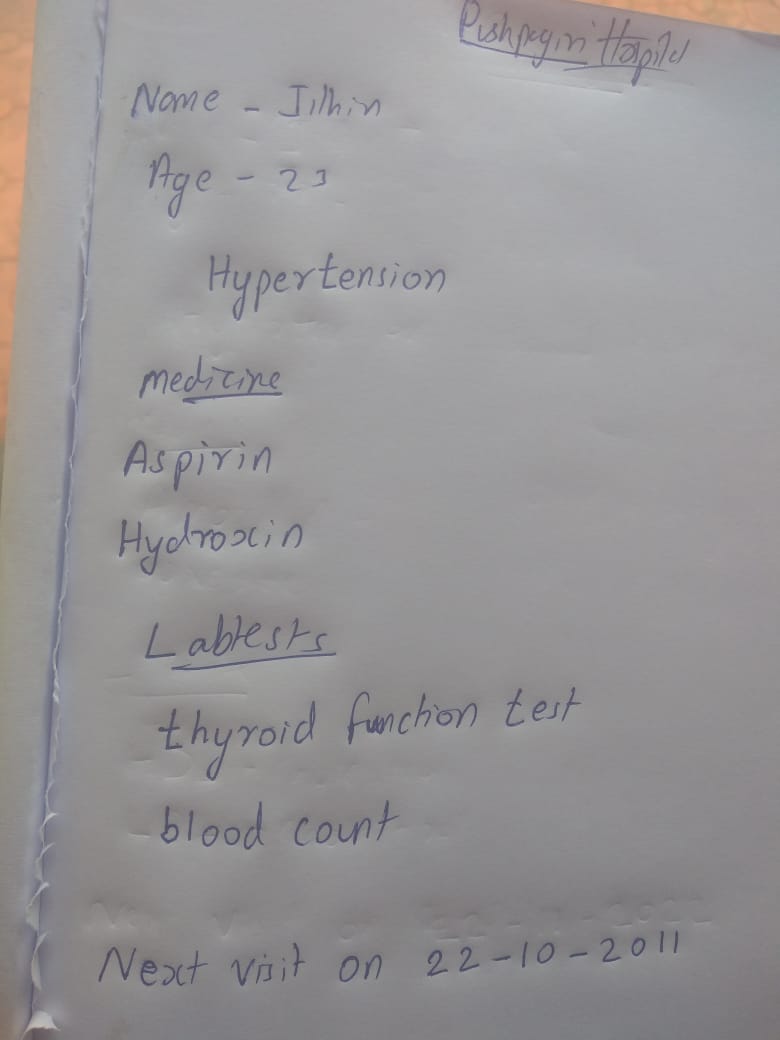 Pushpagiri Hospital
Name - Jithin
Age - 23
Hypertension
medicine
Aspirin
Hydroxin
Labtests
thyroid function test
blood count
Next visit on 22-10-2011